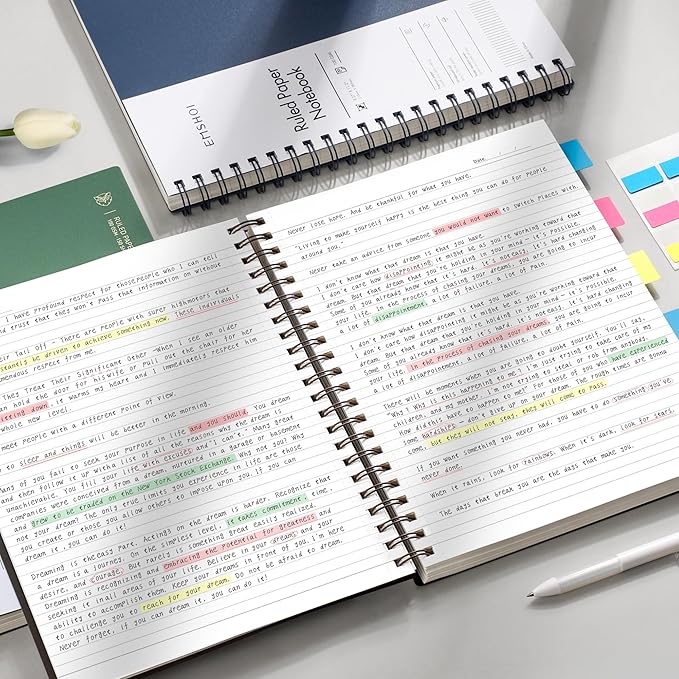 EMSHOI
Ruled Paper
Notebook
RULED PAPER
I have profound respect for thosePeople who I can tell
and trust that they won't pass that information on without
heir Tail Off - There are People with super highmotors that
stantly be driven to achieve something new. These individuals
emendous respect from me.
They Treat Their Significant Other -When I see an older
an hold the door for his wife or Pull out the chair for her
itting down, it warms my heart and I immediately respect him
whole new level.
meet people with a different Point of view.
to sleep and things will better in the morning.
Many of you fail to seek your purpose in life and you should. You dream
and then follow it up with a list of all the reasons why the dream is
unachievable. You fill your life with excuses and I can't. Many great
companies were conceived from a dream, nurtured in a garage or basement
and grew to be traded on the New York Stock Exchange. Why not you? Why
not your dream? The only true limits you experience in life are those
you create or those you allow others to impose upon you. If you can
dream it, you can do it!
Dreaming is the easy part. Acting on the dream is harder. Recognize that
a dream is a journey. On the simplest level, it takes commitment, time,
desire, and courage. But rarely is something great easily realized.
Dreaming is recognizing and embracing the potential for greatness and
seeking it in all areas of your life. Believe in your dreams and your
ability to accomplish them. Keep your dreams in front of you. I'm here
to challenge you to reach for your dream. Do not be afraid to dream.
Never forget, if you can dream it, you can do it!
Date. / /
Never lose hope. And be thankful for what you have.
"Living to make yourself happy is the best thing you can do for People
around you."
Never take an advice from someone you would not want to switch places with.
I don't know what that dream is that you have.
I don't care how disappointing it might be as you're working toward that
dream. But that dream that you're holding in your mind - it's possible.
Some of you already know that it's hard. it's not easy. it's hard changing
your life. In the process of chasing your dreams, you are going to incur
a lot of disappointment, a lot of failure, a lot of pain.
I don't know what that dream is that you have
I don't care how disappointing it might be as you're working toward that
dream. But that dream that you're holding in your mind - it's possible.
Some of you already know that it's hard. it's not easy. it's hard changing
your life. In the process of chasing your dreams, you are going to incur
a lot of disappointments, a lot of failure, a lot of pain.
There will be moments when you are going to doubt yourself. You'll say,
"Why? Why is this happening to me? I'm just trying to take care of my
children, and my mother. I'm not trying to steal or rob from anybody.
How did this have to happen to me? For those of you who have experienced
some hardships - don't give up on your dream. The rough times are gonna
come, but they will not stay, they will come to pass.
If you want something you never had, you have to do something you've
never done.
When it rains, look for rainbows. When it's dark, look for stars.
The days that break you are the days that make you.